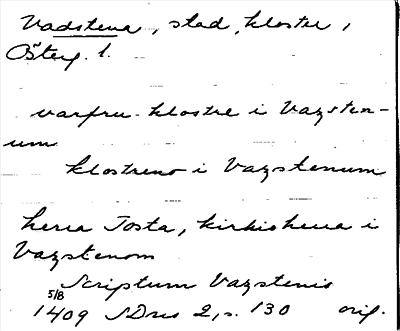 Vadstena, stad, kloster,
Österg. l.
varfru klostre i Vazsten-
um
klostreno i Vazstenum
herra Josta, kirkiohena i
Vazstenom
Scriptum Vazstenis
5/8
1409 SDns 2, s. 130 orig.